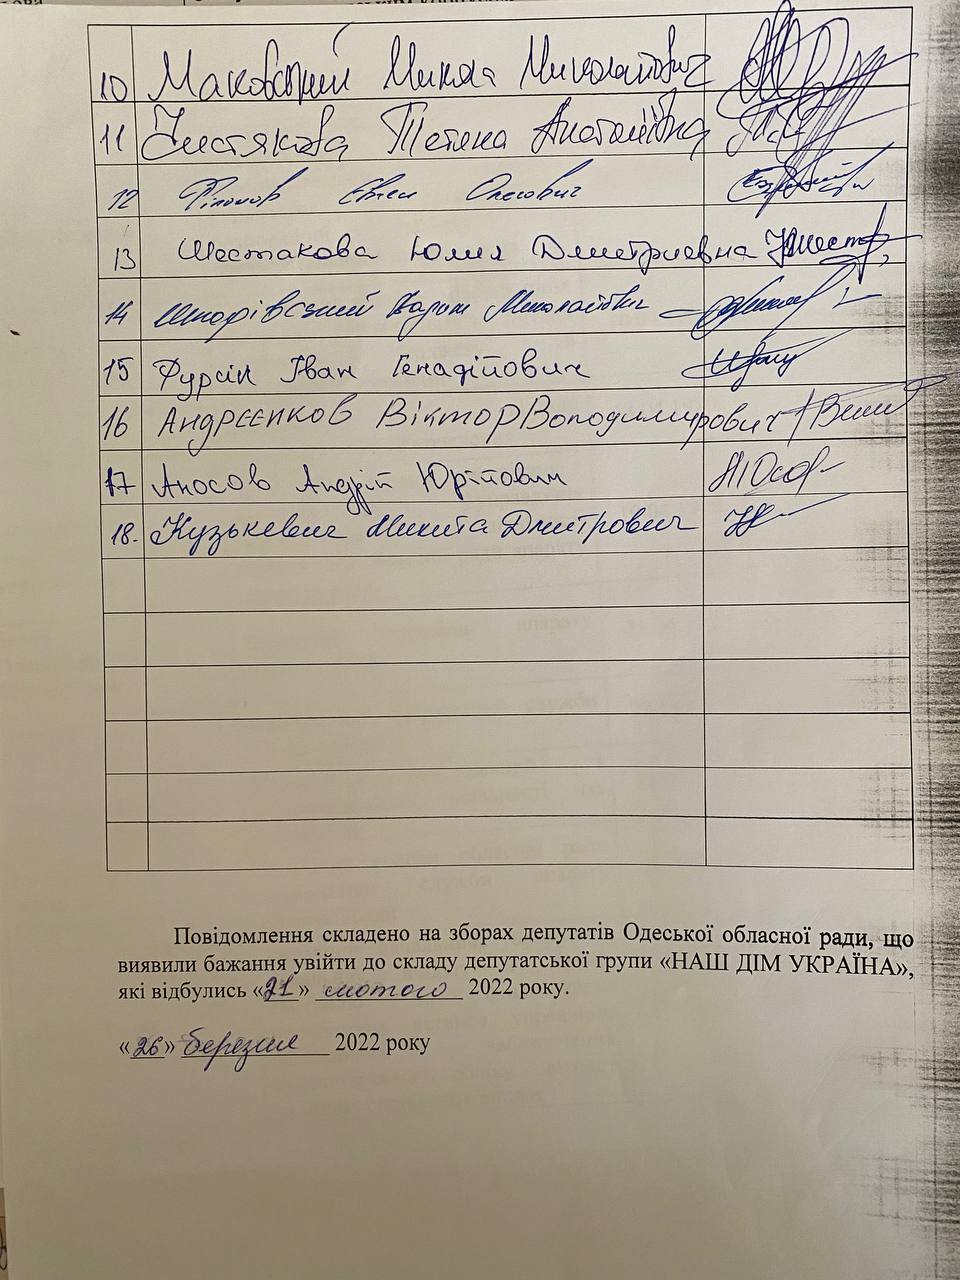 10 Маковський Микола Миколайович
11 Чистякова Тетяна Анатоліївна
12 Філімонов Євген Олегович
13 Шестакова Юлия Дмитриевна
14 Вадим Миколайович
15 Фурсін Іван Генадійович
16 Андрєєнков Віктор Володимирович
17 Аносов Андрій Юрійович
18. Кузькевич Микита Дмитрович
Повідомлення складено на зборах депутатів Одеської обласної ради, що
виявили бажання увійти до складу депутатської групи «НАШ ДІМ УКРАЇНА»,
які відбулись «21» лютого 2022 року.
«26» березня 2022 року